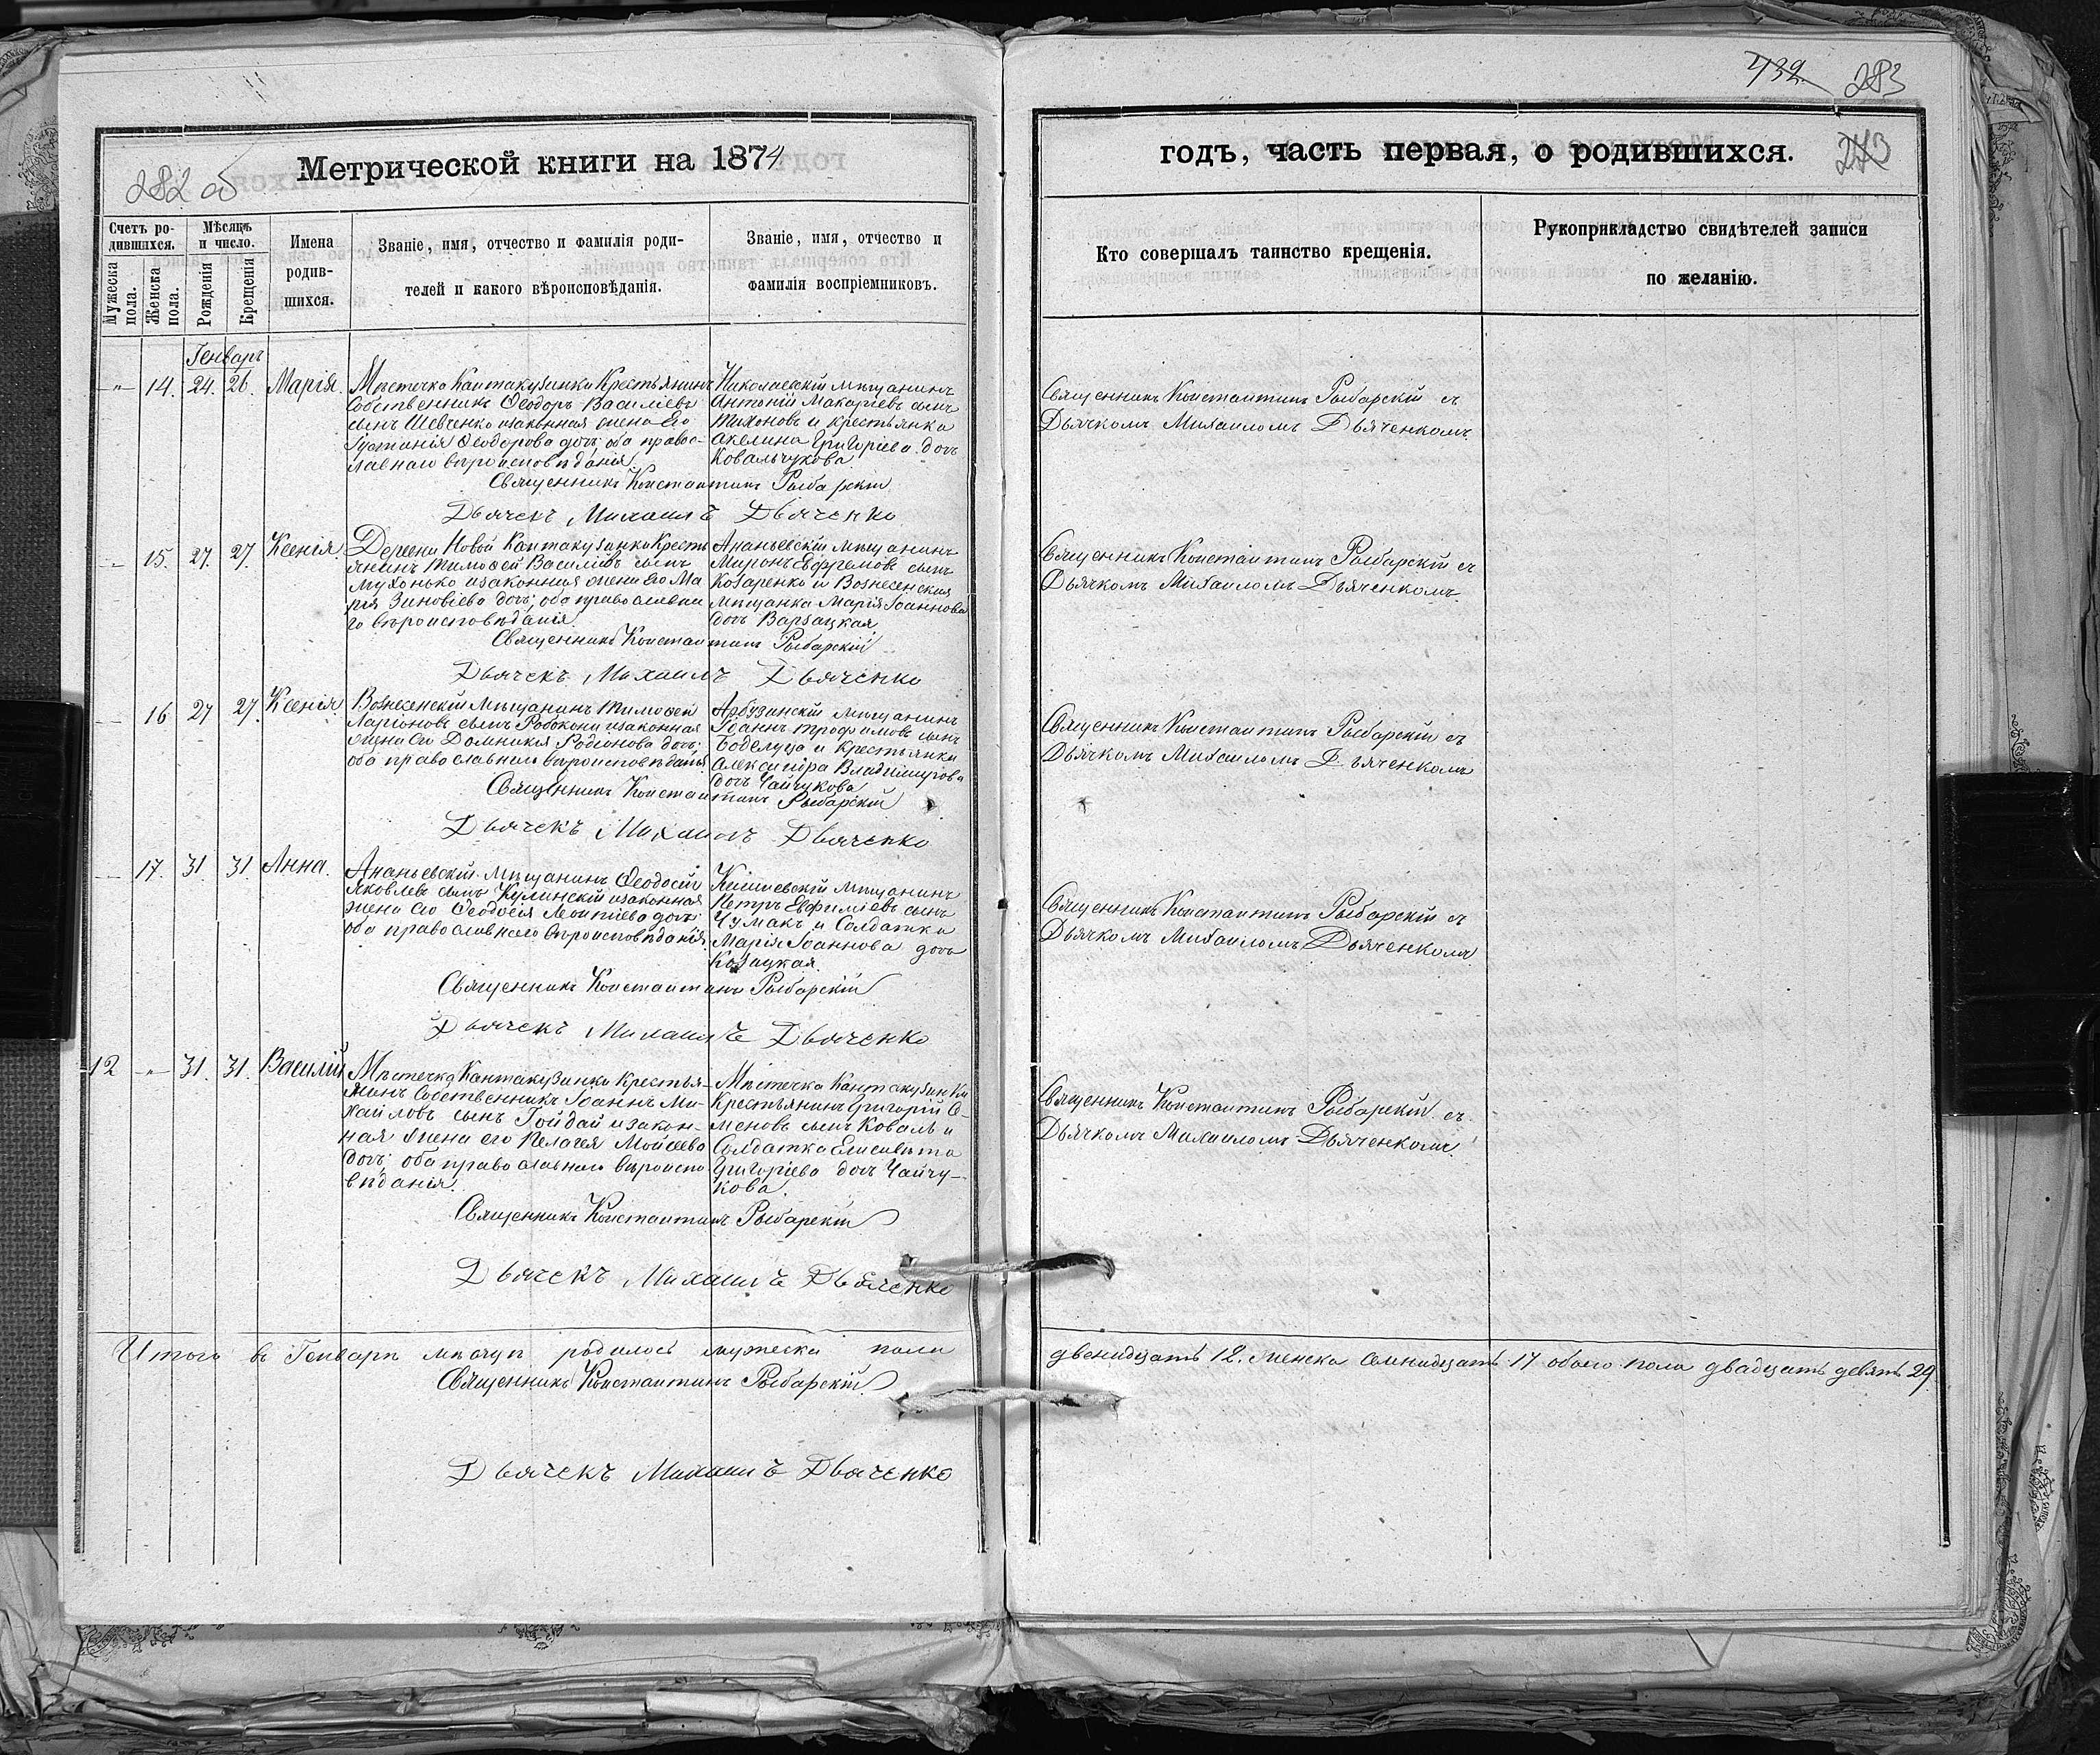 432. 283
282 об
Метрической книги на 1874
годъ, часть первая, о родившихся.
Счетъ ро-
дившихся.
Мужеска
пола.
Женска
пола.
Мѣсяцъ
и число.
Рожденія
Крещенія
Имена
родив-
шихся.
Званіе, имя, отчество и фамилія роди-
телей и какого вѣроисповѣданія.
Званіе, имя, отчество и
фамилія воспріемниковъ.
Кто совершалъ таинство крещенія.
Рукоприкладство свидѣтелей записи
по желанію.
Генварь
-"- 14. 24. 26. Марія
Мѣстечка Кантакузинки Крестьянинъ
Собственникъ Ѳеодоръ Василіевъ
сынъ Шевченко изаконная жена Его
Іустинія Ѳеодорова дочь; оба правос-
лавнаго вѣроисповѣданія
Николаевскій мѣщанинъ
Антоній Макаріевъ сынъ
Тихоновъ и крестьянка
Акелина Григоріева дочь
Ковальчукова.
Священникъ Константинъ Рыбарскій съ
Дьячкомъ Михаиломъ Дьяченкомъ
Священникъ Константинъ Рыбарскій
Дьячекъ Михаилъ Дьяченко
15. 27. 27. Ксенія
Деревни Новой Кантакузинки Кресть
янинъ Тимоѳей Василіевъ сынъ
Мухонько изаконная жена Его Ма
рія Зиновіева дочь; оба православна
го вѣроисповѣданія
Ананьевскій мѣщанинъ
Миронъ Евфремовъ сынъ
Козаренко и Вознесенская
мѣщанка Марія Іоаннова
дочь Варзацкая
Священникъ Константинъ Рыбарскій съ
Дьячкомъ Михаиломъ Дьяченкомъ.
Священникъ Константинъ Рыбарскій
Дьячекъ Михаилъ Дьяченко
16 27 27. Ксенія
Вознесенскій Мѣщанинъ Тимоѳей
Ларіоновъ сынъ Робокони изаконная
жена Его Домникія Родіонова дочь;
оба православнаго вѣроисповѣданія
Арбузинскій мѣщанинъ
Іоаннъ Трофимовъ сынъ
Боделуца и Крестьянка
Александра Владимирова
дочь Чайчукова
Священникъ Константинъ Рыбарскій съ
Дьячкомъ Михаиломъ Дьяченкомъ
Священникъ Константинъ Рыбарскій
Дьячекъ Михаилъ Дьяченко
17. 31 31 Анна.
Ананьевскій мѣщанинъ Ѳеодосій
Яковлевъ сынъ Кулинскій изаконная
жена Его Ѳеодосія Леонтіева дочь;
оба православнаго вѣроисповѣданія
мѣщанинъ
Петръ Евфиміевъ сынъ
Чумакъ и Солдатка
Марія Іоаннова дочь
Козацкая.
Священникъ Константинъ Рыбарскій съ
Дьячкомъ Михаиломъ Дьяченкомъ
Священникъ Константинъ Рыбарскій
Дьячекъ Михаилъ Дьяченко
12 -"- 31. 31. Василій
Мѣстечка Кантакузинки Крестья-
нинъ Собственникъ Іоаннъ Ми-
хайловъ сынъ Гойдай изакон-
ная жена его Пелагея Мойсеева
дочь; оба православнаго вѣроиспо
вѣданія.
Мѣстечка Кантакузинки
Крестьянинъ Григорій Се-
меновъ сынъ Коваль и
Солдатка Елисавета
Григоріева дочь Чайчу-
кова.
Священникъ Константинъ Рыбарскій съ
Дьячкомъ Михаиломъ Дьяченкомъ
Священникъ Константинъ Рыбарскій
Дьячекъ Михаилъ Дьяченко
Итого въ Генварѣ мѣсяцѣ родилось мужеска пола
двенадцать 12. женска семнадцать 17 обоего пола двадцать девять 29.
Священникъ Константинъ Рыбарскій
Дьячекъ Михаилъ Дьяченко